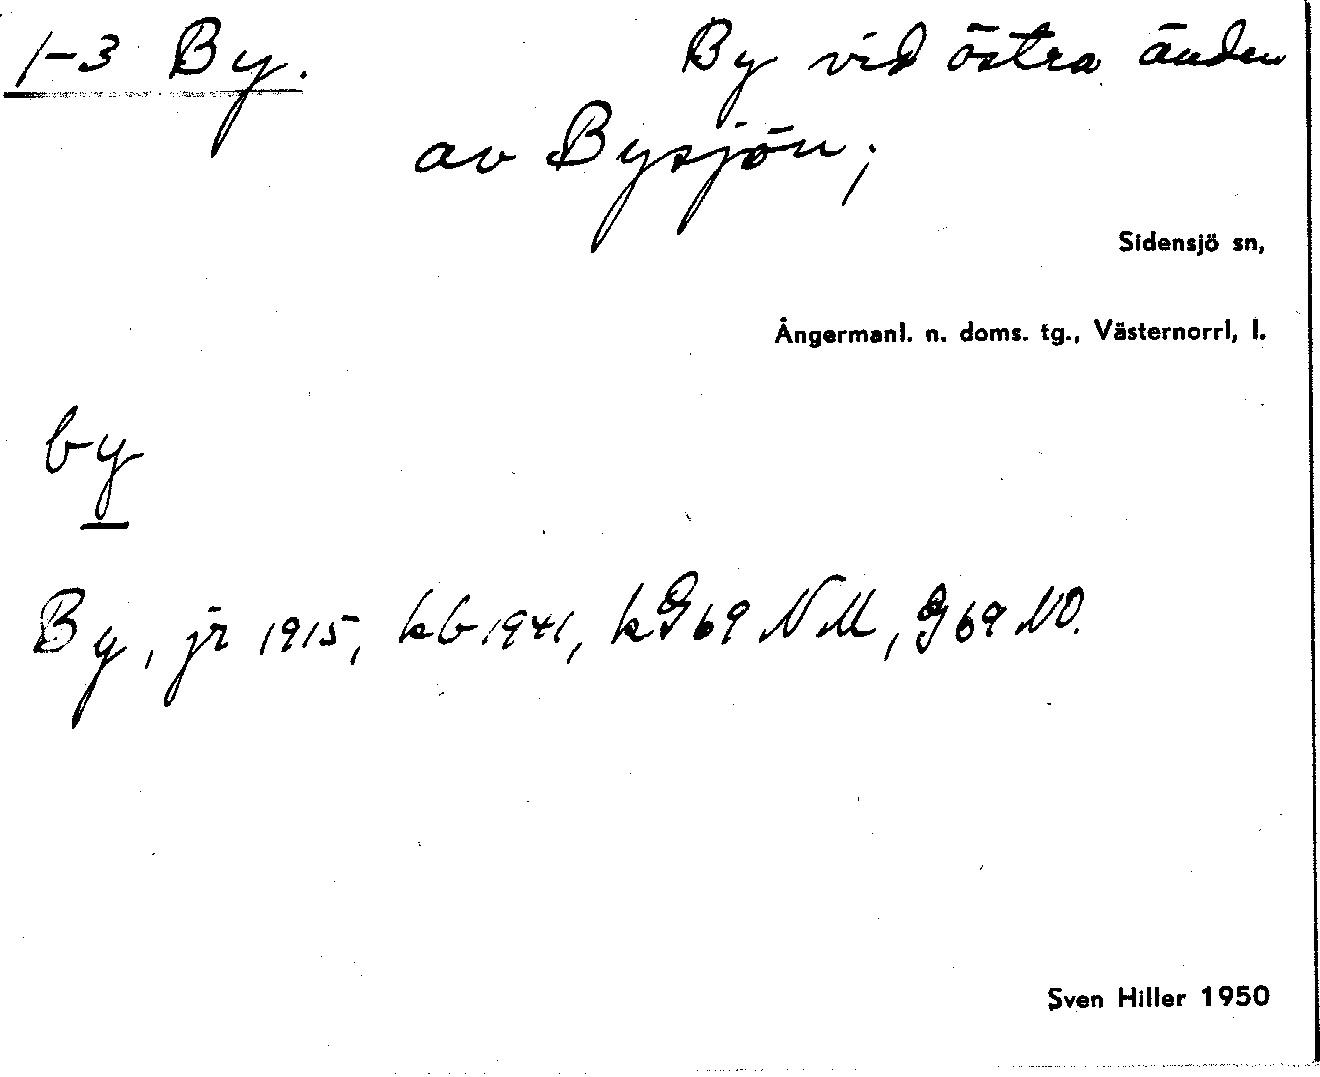 1-3 By. By vid östra änden
av Bysjön;
Sidensjö sn,
Ångermanl. n. doms. tg., Västernorrl, l.
by
By, jr 1915, kb 1941, kG 69 NM, G 69 NO.
Sven Hiller 1950